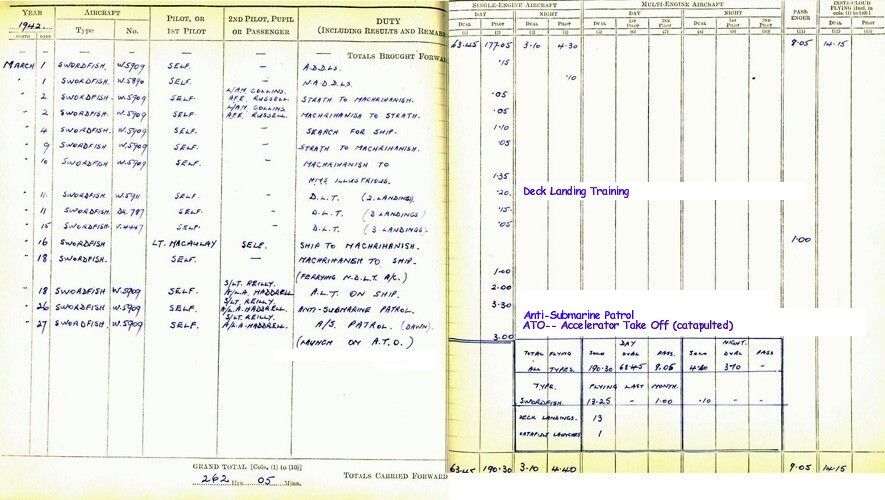 YEAR AIRCRAFT PILOT, OR 1ST PILOT 2ND PILOT, PUPIL OR PASSENGER DUTY (INCLUDING RESULTS AND REMAR
1942 Type No.
MONTH DATE
SINGLE-ENGINE AIRCRAFT MULTI-ENGINE AIRCRAFT PASS-ENGER INSTR/CLOUD FLYING [Incl. in cols. (1) to (10)]
DAY NIGHT DAY NIGHT
DUAL PILOT DUAL PILOT DUAL 1ST PILOT 2ND PILOT DUAL 1ST PILOT 2ND PILOT DUAL PILOT
(1) (2) (3) (4) (5) (6) (7) (8) (9) (10) (11) (12) (13)
TOTALS BROUGHT FORWAR 63.45 177.05 3.10 4.30 8.05 14.15
MARCH 1 SWORDFISH. W.5909 SELF. — A.D.D.LS. .15
" 1 SWORDFISH. W.5890 SELF. — N.A.D.D.LS. .10
" 2 SWORDFISH. W.5909 SELF. L/AM. COLLINS. AFE. RUSSELL. STRATH TO MACHRIHANISH. .05
" 2 SWORDFISH. W.5909 SELF. L/AM. COLLINS. AFE. RUSSELL. MACHRIHANISH TO STRATH. .05
" 4 SWORDFISH. W.5909 SELF. — SEARCH FOR SHIP. 1.10
" 9 SWORDFISH. W.5909 SELF. — STRATH TO MACHRIHANISH. .05
" 10 SWORDFISH W.5909 SELF. — MACHRIHANISH TO
HMS ILLUSTRIOUS. 1.35
" 11. SWORDFISH. W.5911 SELF. — D.L.T. (2 LANDINGS). .20 Deck Landing Training
" 11 SWORDFISH. DK.787 SELF. — D.L.T. (3 LANDINGS) .15
" 15 SWORDFISH V.4447 SELF. — D.L.T. (3 LANDINGS). .05
" 16 SWORDFISH LT. MACAULAY SELF. SHIP TO MACHRIHANISH. 1.00
" 18 SWORDFISH. SELF. — MACHRIHANISH TO SHIP.
(FERRYING N.D.L.T. A/C.) 1.00
" 18 SWORDFISH. W.5909 SELF. S/LT. REILLY. A/L.A. MADDRELL A.L.T. ON SHIP. 2.00
" 26 SWORDFISH W.5909 SELF. S/LT. REILLY. A/L.A. MADDRELL. ANTI-SUBMARINE PATROL. 3.30 Anti-Submarine Patrol
" 27 SWORDFISH. W.5909 SELF. S/LT. REILLY. A/L.A. MADDRELL. A/S. PATROL. (DAWN). ATO-- Accelerator Take Off (catapulted)
(LAUNCH ON A.T.O.) 3.00
DAY NIGHT.
TOTAL FLYING SOLO DUAL PASS. SOLO DUAL PASS
ALL TYPES. 190.30 63.45 9.05 4.40 3.10 -
TYPE. FLYING LAST MONTH.
SWORDFISH. 13.25 - 1.00 .10 - -
DECK LANDINGS. 13
CATAPULT LAUNCHES 1
GRAND TOTAL [Cols. (1) to (10)]
262 Hrs. 05 Mins.
TOTALS CARRIED FORWARD 63.45 190.30 3.10 4.40 9.05 14.15